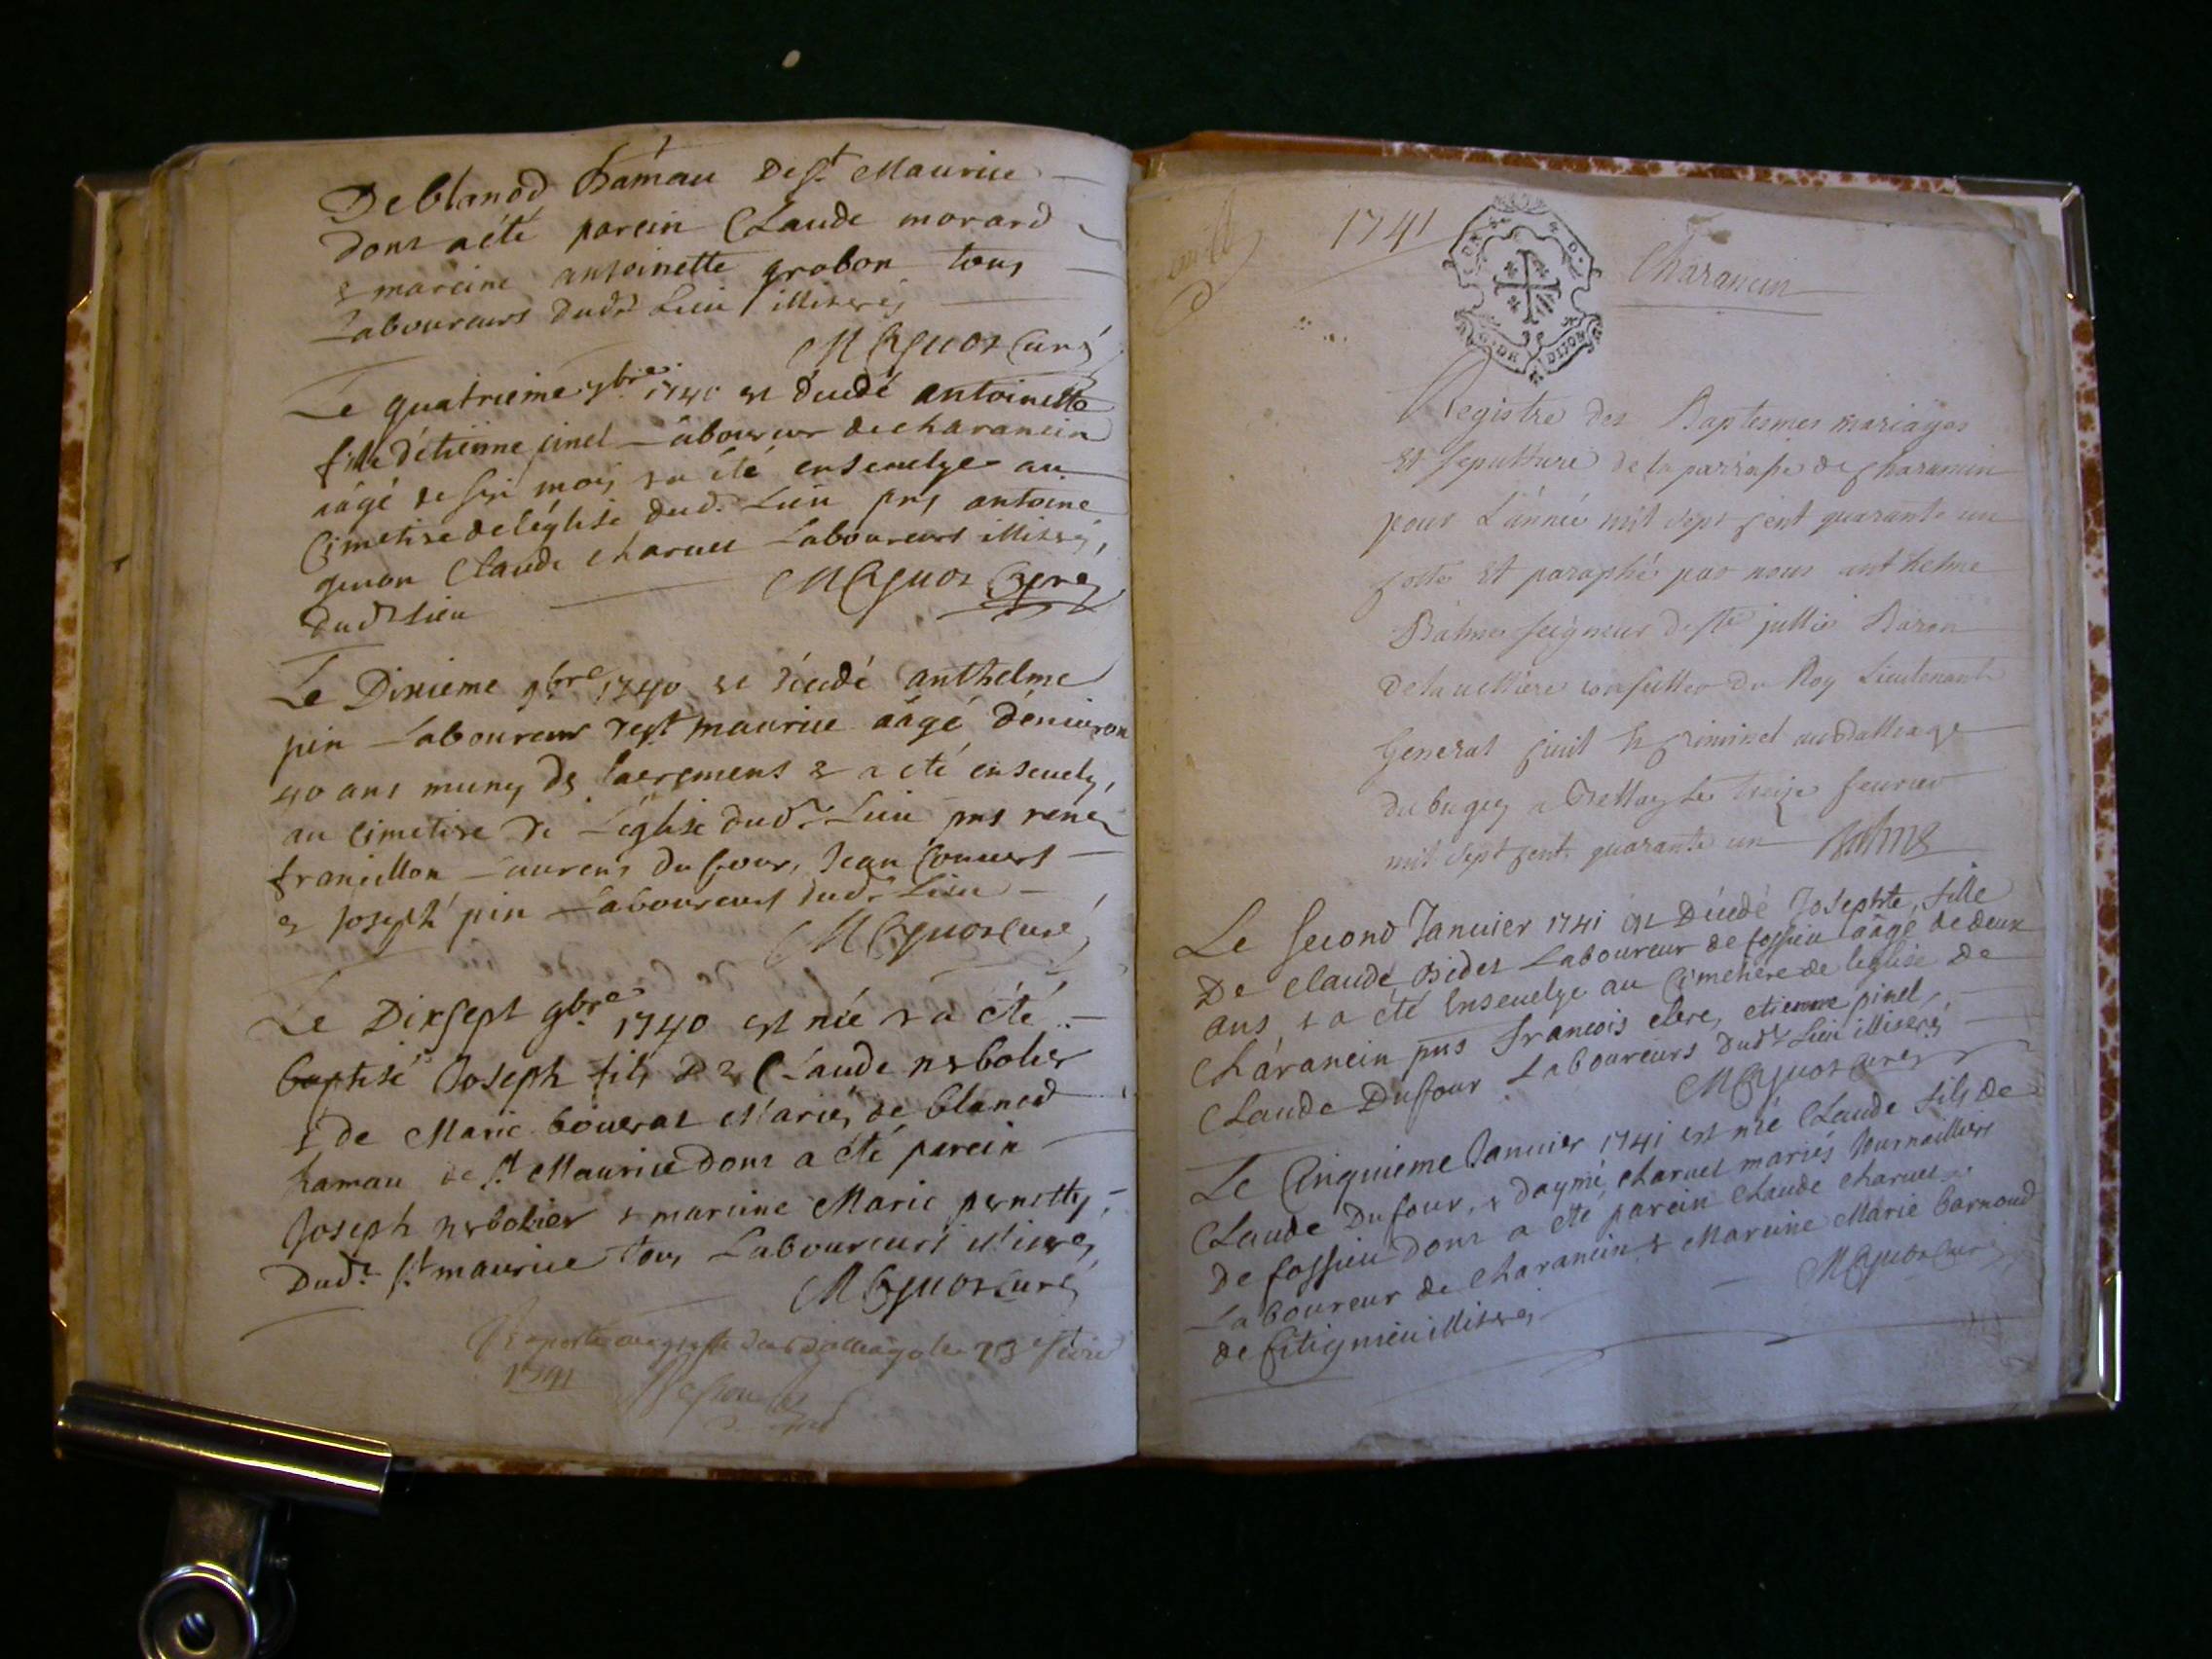 De blanod hamau de st Maurice
dont a été parein Claude morard
& mareine antoinette grobon tous
Laboureurs dudt Lieu illiterés
Curé
Le quatrieme 9bre 1740 est décédé antoinette
fille d'étienne pinel Laboureur de charancin
aagé de six mois & a été ensevelye au
Cimetire de léglise dud. Lieu pns antoine
Claude charvet Laboureurs illiterés,
dudt lieu
Le Dixieme 9bre 1740 est décédé anthelme
pin Laboureur de st maurice aagé d'environ
40 ans muny des sacremens & a été ensevely,
au cimetire de Léglise dudt Lieu pns rené
francillon Laurens dufour, Jean Convert
& Joseph pin Laboureurs dudt Lieu
curé
Le Dixsept 9bre 1740 est née & a été
baptisé Joseph fils de Claude
& de Marie Mariés de blanod
hamau de st Maurice dont a été parein
Joseph & mareine Marie
dudt st maurice tous Laboureurs illiterés
curé
1741
1741
Charancin
G. DE DIJON
Registre des Baptesmes mariages
et sepulture de la parroisse de Charancin
pour L'année mil sept cent quarante un
cotté et paraphé par nous anthelme
Balme seigneur de ste jullie Baron
de la conseiller du Roy Lieutenant
General civil & criminel au Balliage
du bugey a Belley le treize fevrier
mil sept cent quarante un Balme
Le second Janvier 1741 est Décédé Josephte, fille
De claude Bidet Laboureur de fossieu aagé de deux
ans & a été Ensevelye au Cimetiere de leglise De
Charancin pns francois clerc, etienne pinel,
Claude Dufour Laboureurs dudt Lieu illiterés
curé
Le Cinquieme Janvier 1741 est née Claude fils de
Claude Dufour, & d'aymé charvet mariés Journailliers
De fossieu dont a été parein Claude charvet
Laboureur de Charancin & Mareine Marie barnoud
de Sitignieu illiterés
Curé